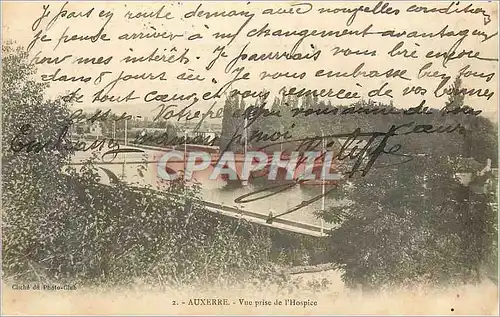 Je pars en route demain avec nouvelles conditions
Je pense arriver à un changement avantageux
pour mes intérêts. Je pourrais vous lire encore
dans 8 jours ici. Je vous embrasse bien fort
de tout cœur et vous remercie de vos bonnes
Votre
cœur
Philippe
CPARAMA.com
Cliché de Photo-Club
2. - AUXERRE. - Vue prise de l'Hospice